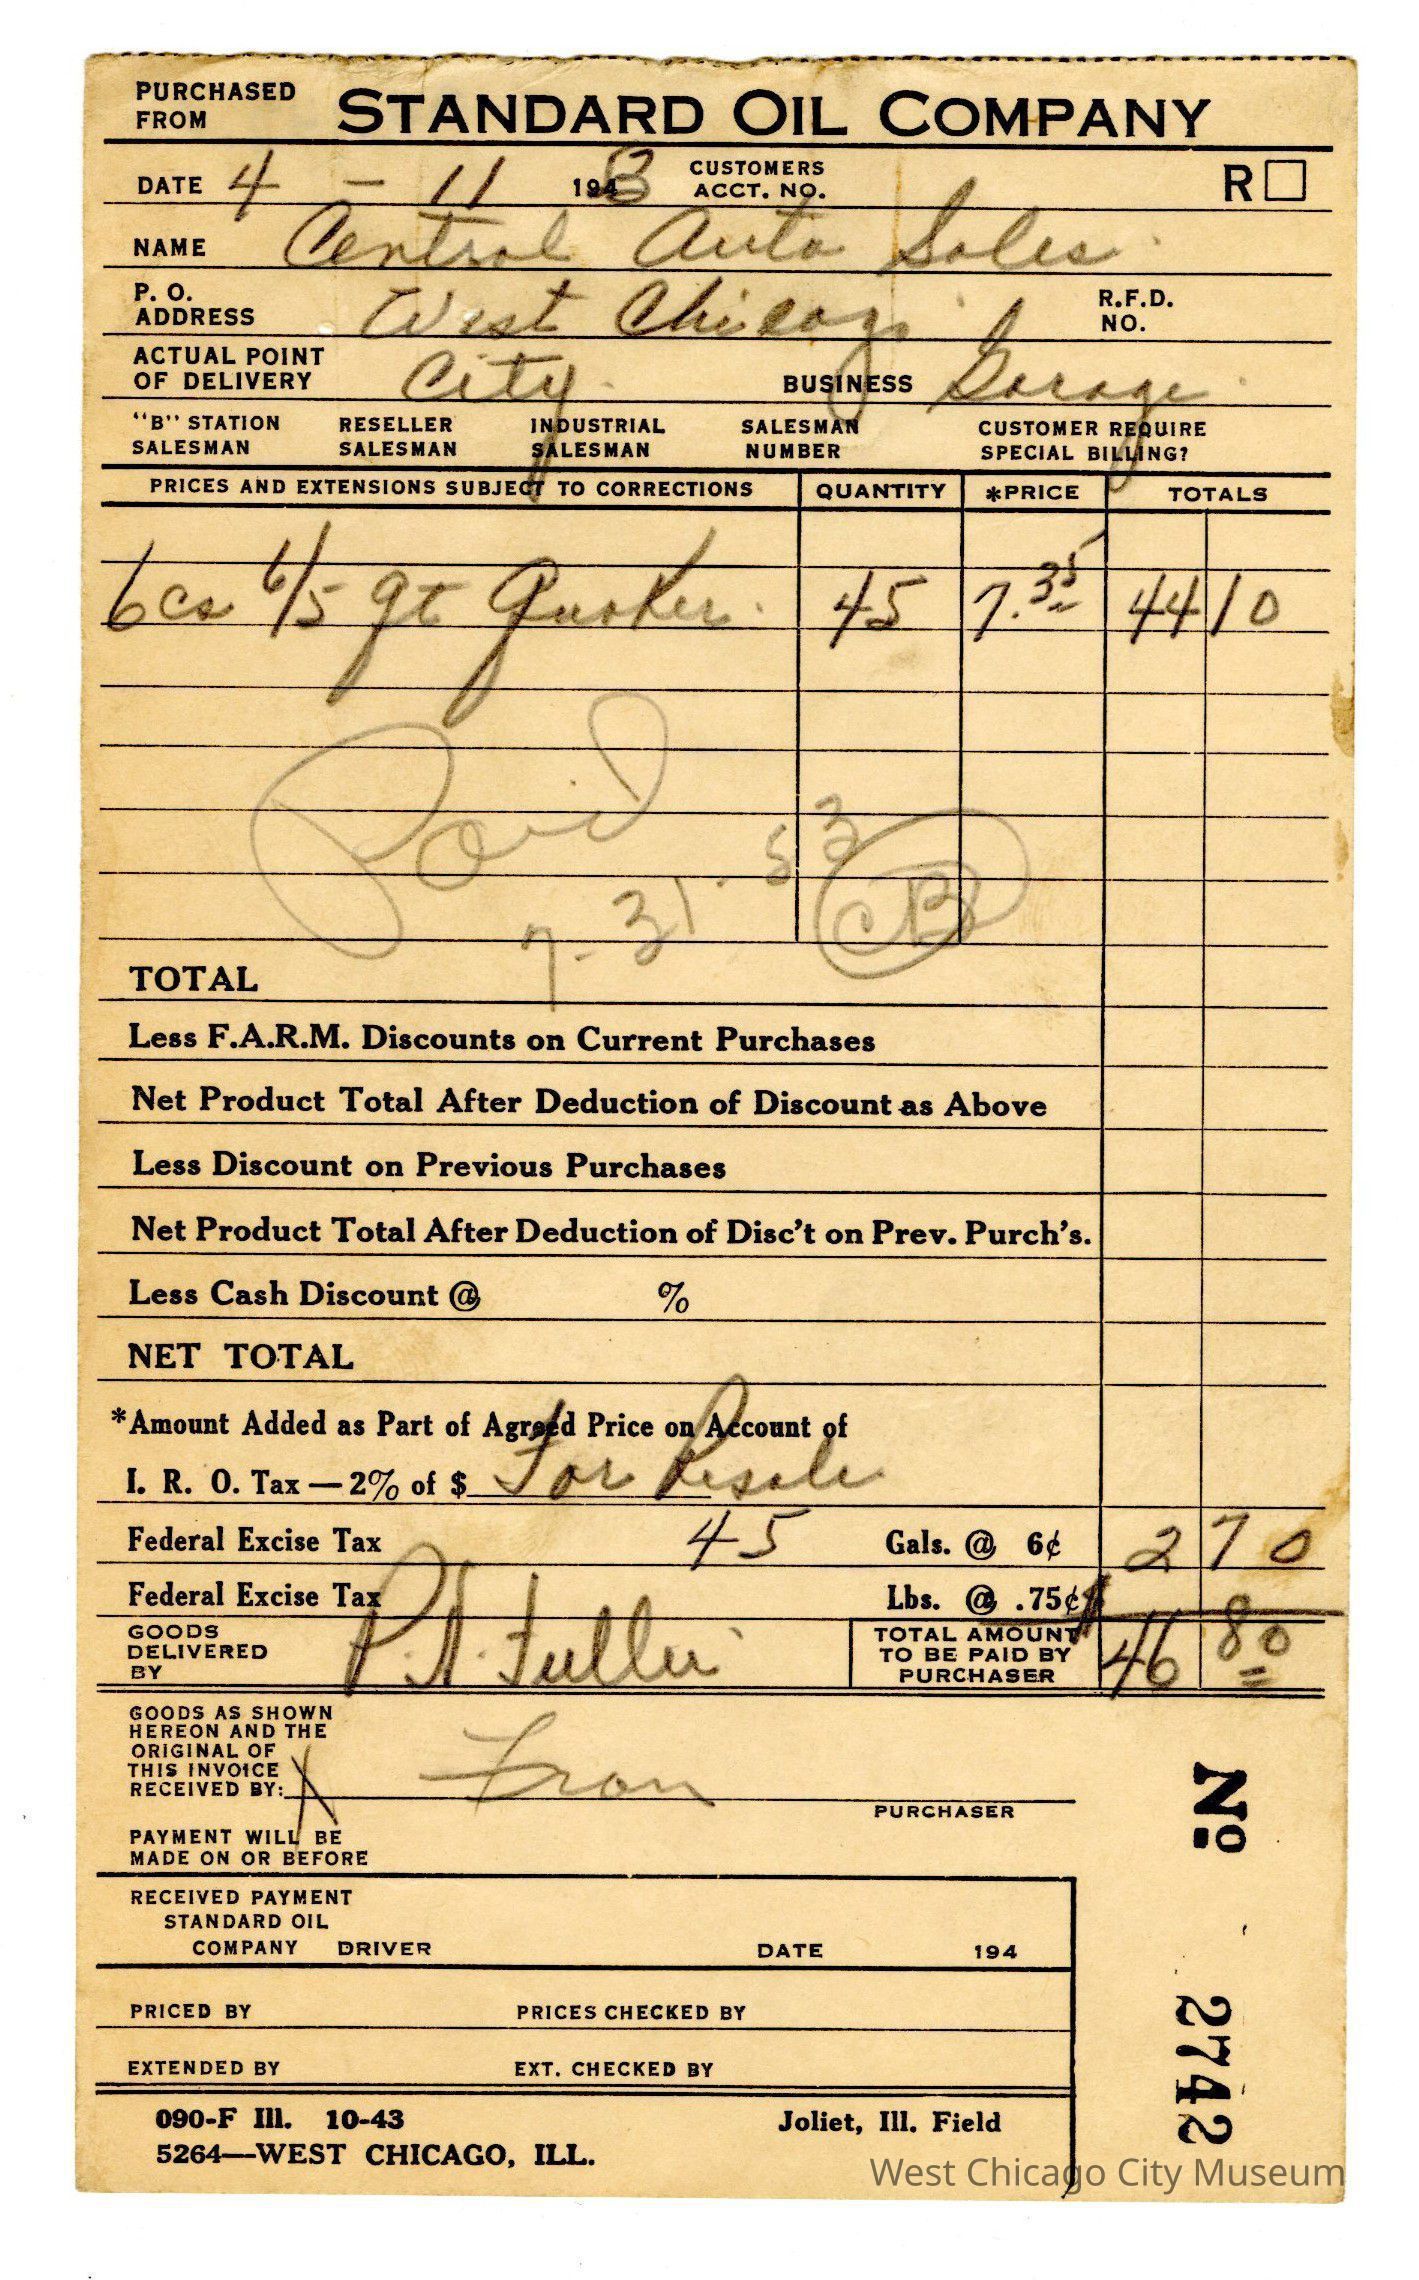 PURCHASED FROM STANDARD OIL COMPANY
DATE 4 - 11 1943 CUSTOMERS ACCT. NO. R
NAME Central Auto Sales
P. O. ADDRESS West Chicago R.F.D. NO.
ACTUAL POINT OF DELIVERY City BUSINESS Garage
"B" STATION SALESMAN RESELLER SALESMAN INDUSTRIAL SALESMAN SALESMAN NUMBER CUSTOMER REQUIRE SPECIAL BILLING?
PRICES AND EXTENSIONS SUBJECT TO CORRECTIONS QUANTITY *PRICE TOTALS
6 cs 6/5 qt Quaker 45 7.35 44 10
Paid
7-31-53
CB
TOTAL
Less F.A.R.M. Discounts on Current Purchases
Net Product Total After Deduction of Discount as Above
Less Discount on Previous Purchases
Net Product Total After Deduction of Disc't on Prev. Purch's.
Less Cash Discount @ %
NET TOTAL
*Amount Added as Part of Agreed Price on Account of
I. R. O. Tax — 2% of $ For Resale
Federal Excise Tax 45 Gals. @ 6¢ 2 70
Federal Excise Tax Lbs. @ .75¢
GOODS DELIVERED BY P.H. Fuller TOTAL AMOUNT TO BE PAID BY PURCHASER $46 80
GOODS AS SHOWN
HEREON AND THE
ORIGINAL OF
THIS INVOICE
RECEIVED BY: X Fran
PURCHASER
PAYMENT WILL BE
MADE ON OR BEFORE
RECEIVED PAYMENT
STANDARD OIL
COMPANY DRIVER DATE 194
PRICED BY PRICES CHECKED BY
EXTENDED BY EXT. CHECKED BY
090-F Ill. 10-43 Joliet, Ill. Field
5264—WEST CHICAGO, ILL.
No 2742
West Chicago City Museum